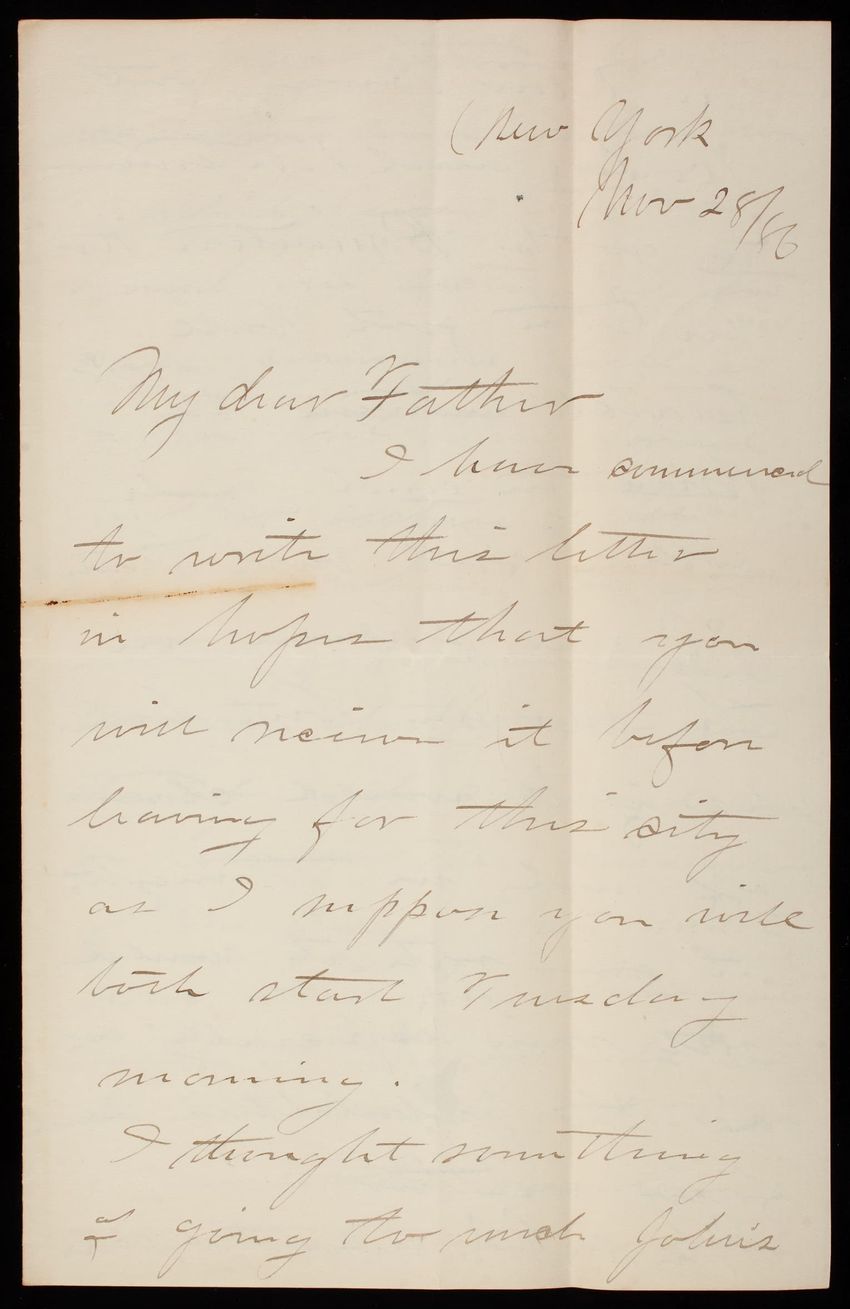 New York
Nov 28/86
My dear Father
I have commenced
to write this letter
in hopes that you
will recieve it before
leaving for this city
as I suppose you will
both start Tuesday
morning.
I thought something
of going to John's